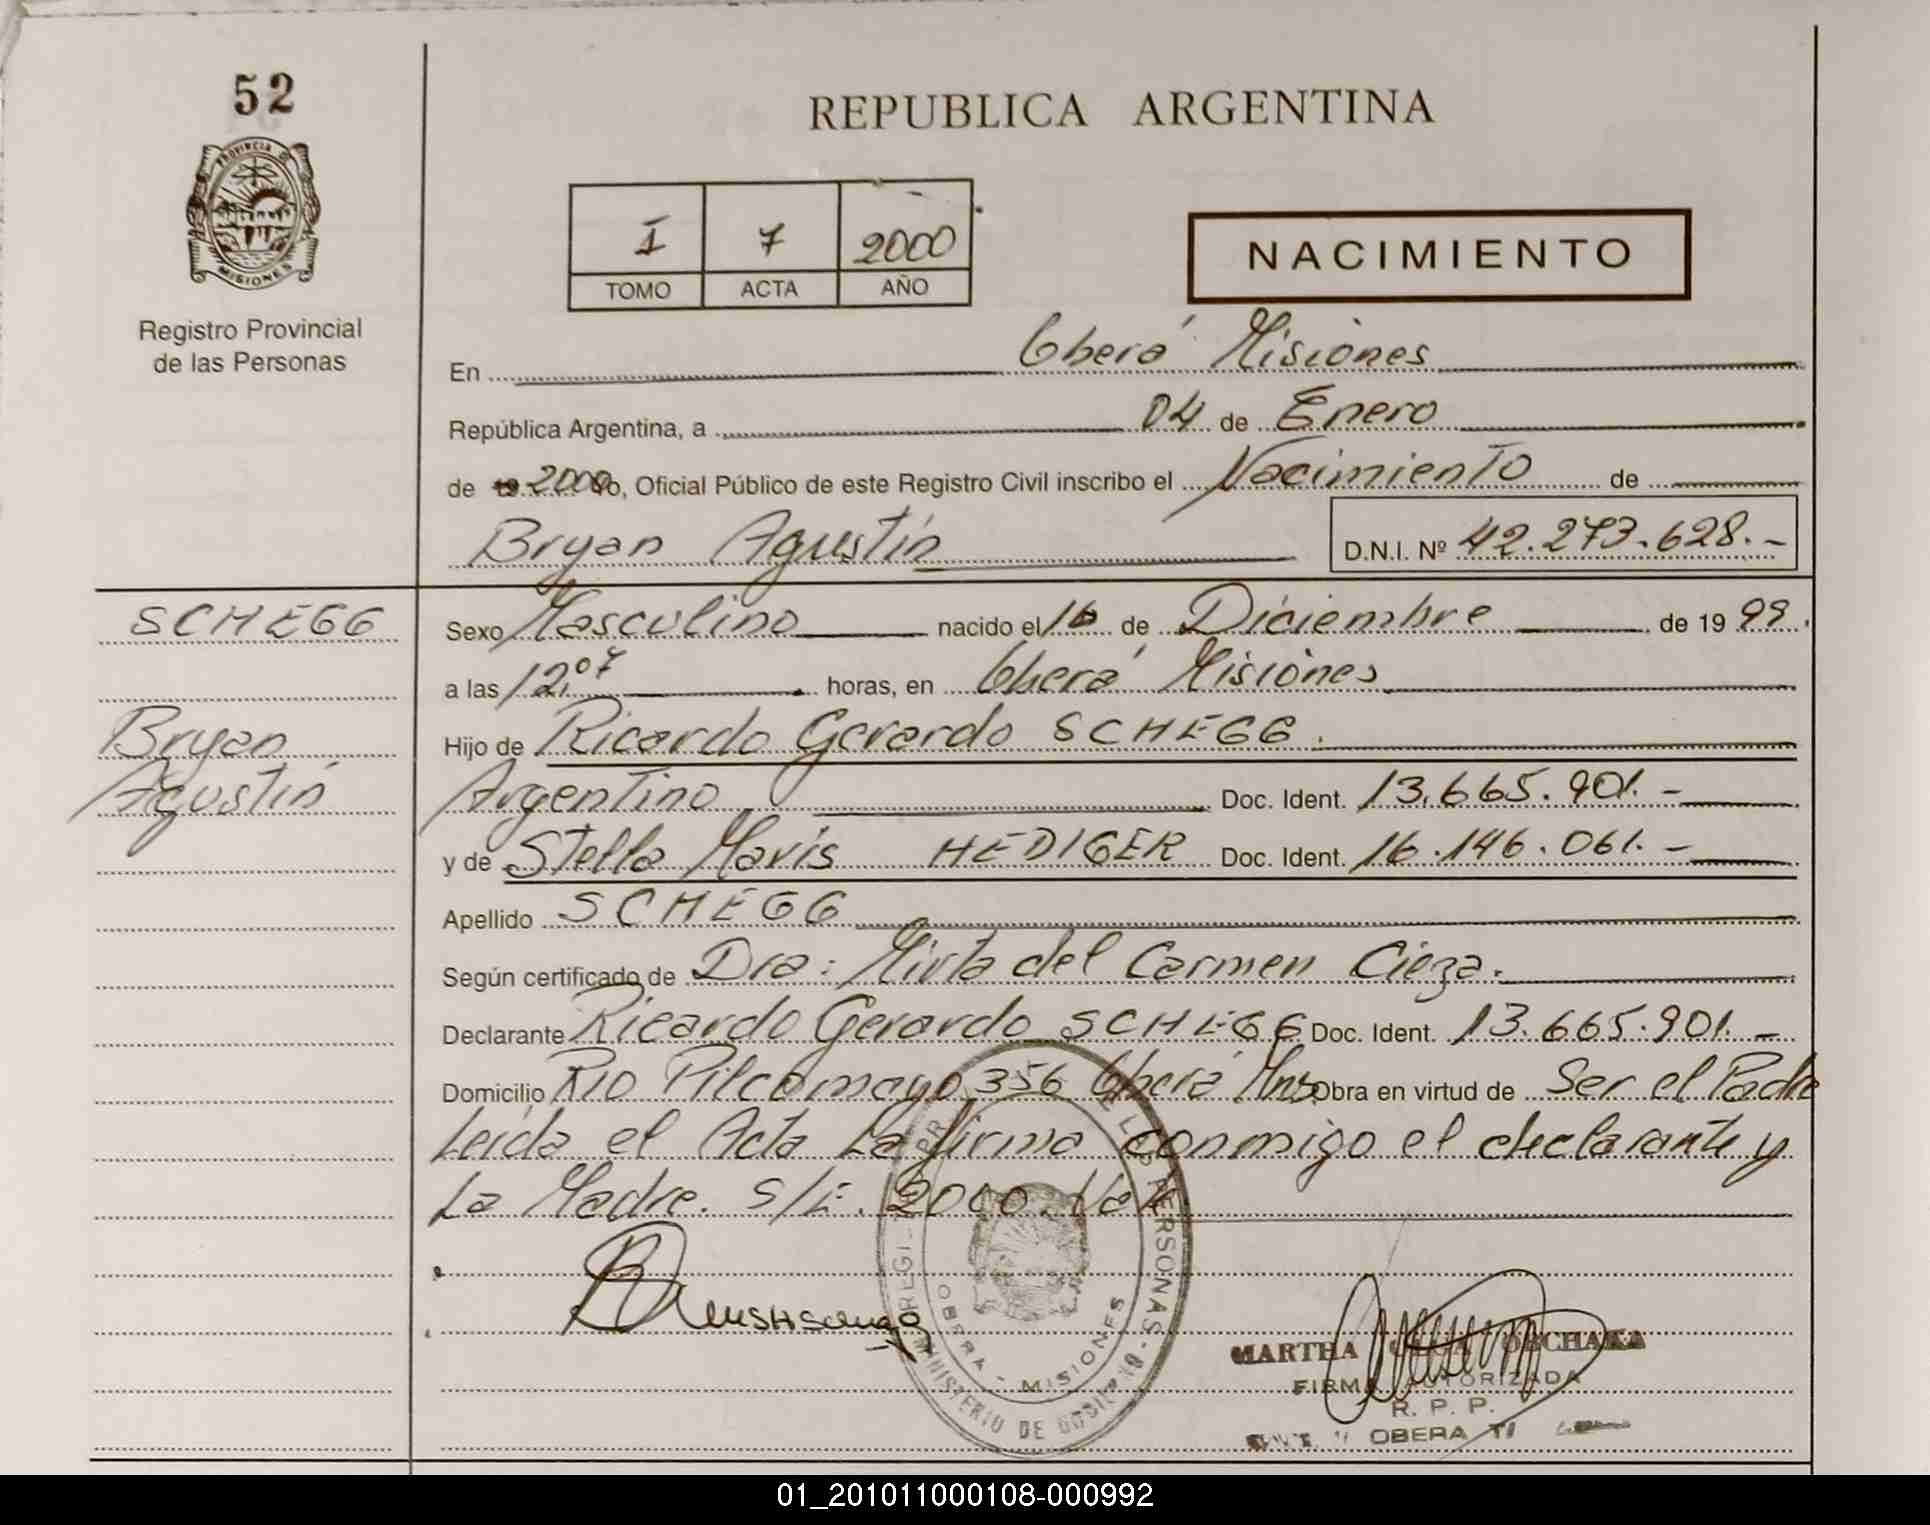 52
PROVINCIA D
MISIONES
Registro Provincial
de las Personas
REPUBLICA ARGENTINA
I 7 2000
TOMO ACTA AÑO
NACIMIENTO
En Oberá Misiones
República Argentina, a 04 de Enero
de 19 2000 Yo, Oficial Público de este Registro Civil inscribo el Nacimiento de
Bryan Agustín D.N.I. Nº 42.273.628.-
SCHEGG
Sexo Masculino nacido el 16 de Diciembre de 19 99.
a las 12,07 horas, en Oberá Misiones
Bryan
Hijo de Ricardo Gerardo SCHEGG.
Agustín
Argentino Doc. Ident. 13.665.901.-
y de Stella Maris HEDIGER Doc. Ident. 16.146.061.-
Apellido SCHEGG
Según certificado de Dra: Mirta del Carmen Cieza.
Declarante Ricardo Gerardo SCHEGG Doc. Ident. 13.665.901.-
Domicilio Rio Pilcomayo 356 Oberá Mns Obra en virtud de Ser el Padre
Leida el Acta La firma conmigo el declarante y
La Madre. S/E. 2000. Vale
PERSONAS
OBERA - MISIONES
MINISTERIO DE
MARTHA
FIRMA AUTORIZADA
R. P. P.
OBERA
01_201011000108-000992